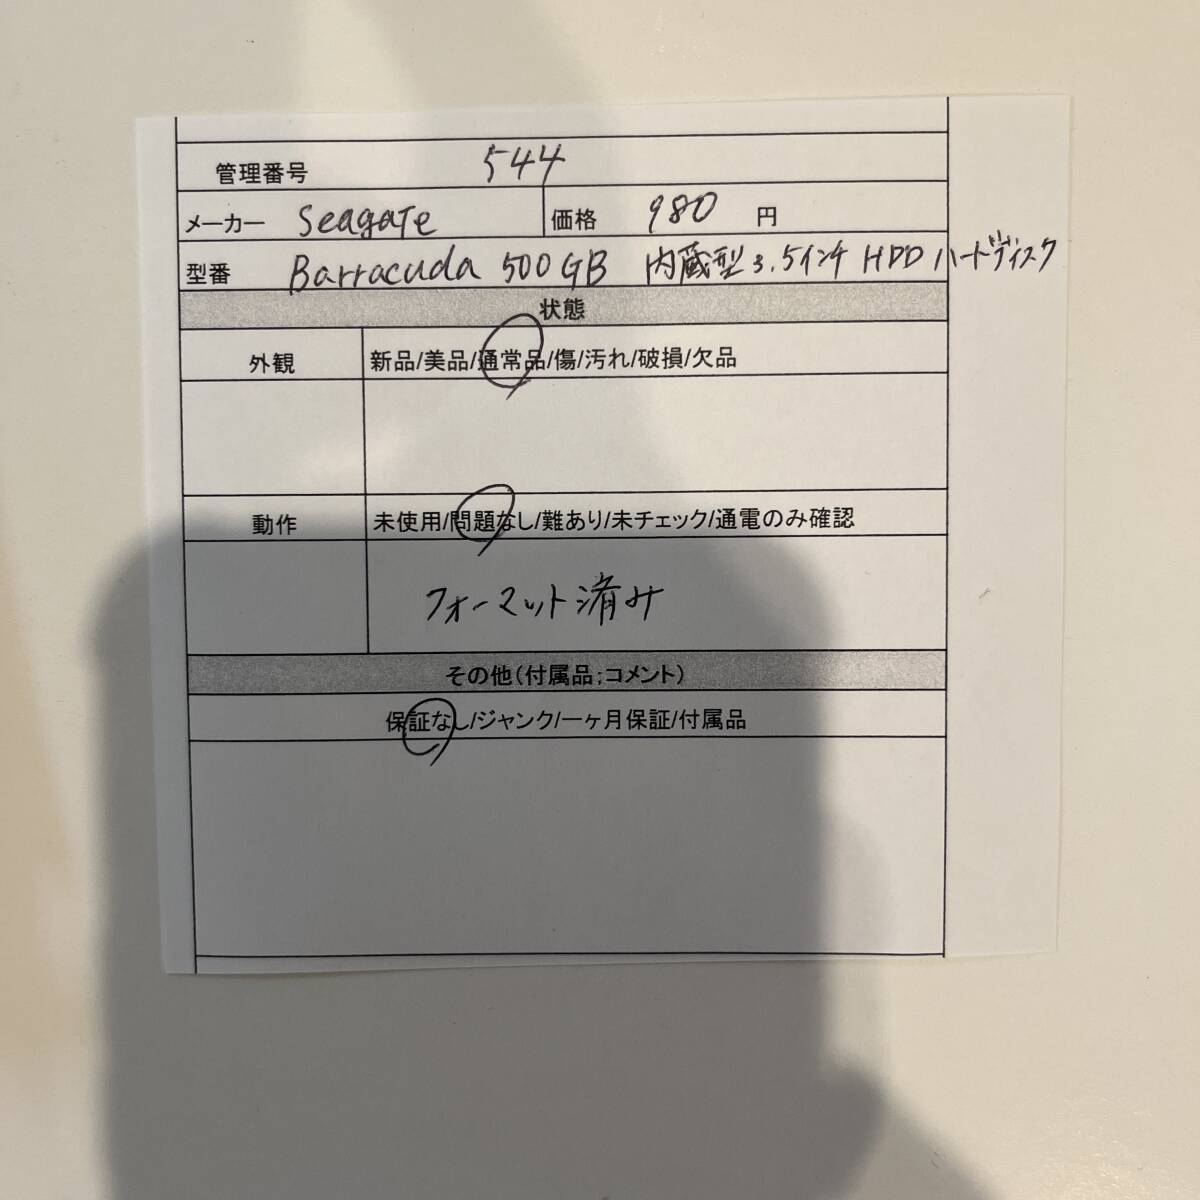 管理番号 544
メーカー Seagate 価格 980 円
型番 Barracuda 500GB 内蔵型3.5インチ HDD ハードディスク
状態
外観 新品/美品/通常品/傷/汚れ/破損/欠品
動作 未使用/問題なし/難あり/未チェック/通電のみ確認
フォーマット済み
その他(付属品;コメント)
保証なし/ジャンク/一ヶ月保証/付属品